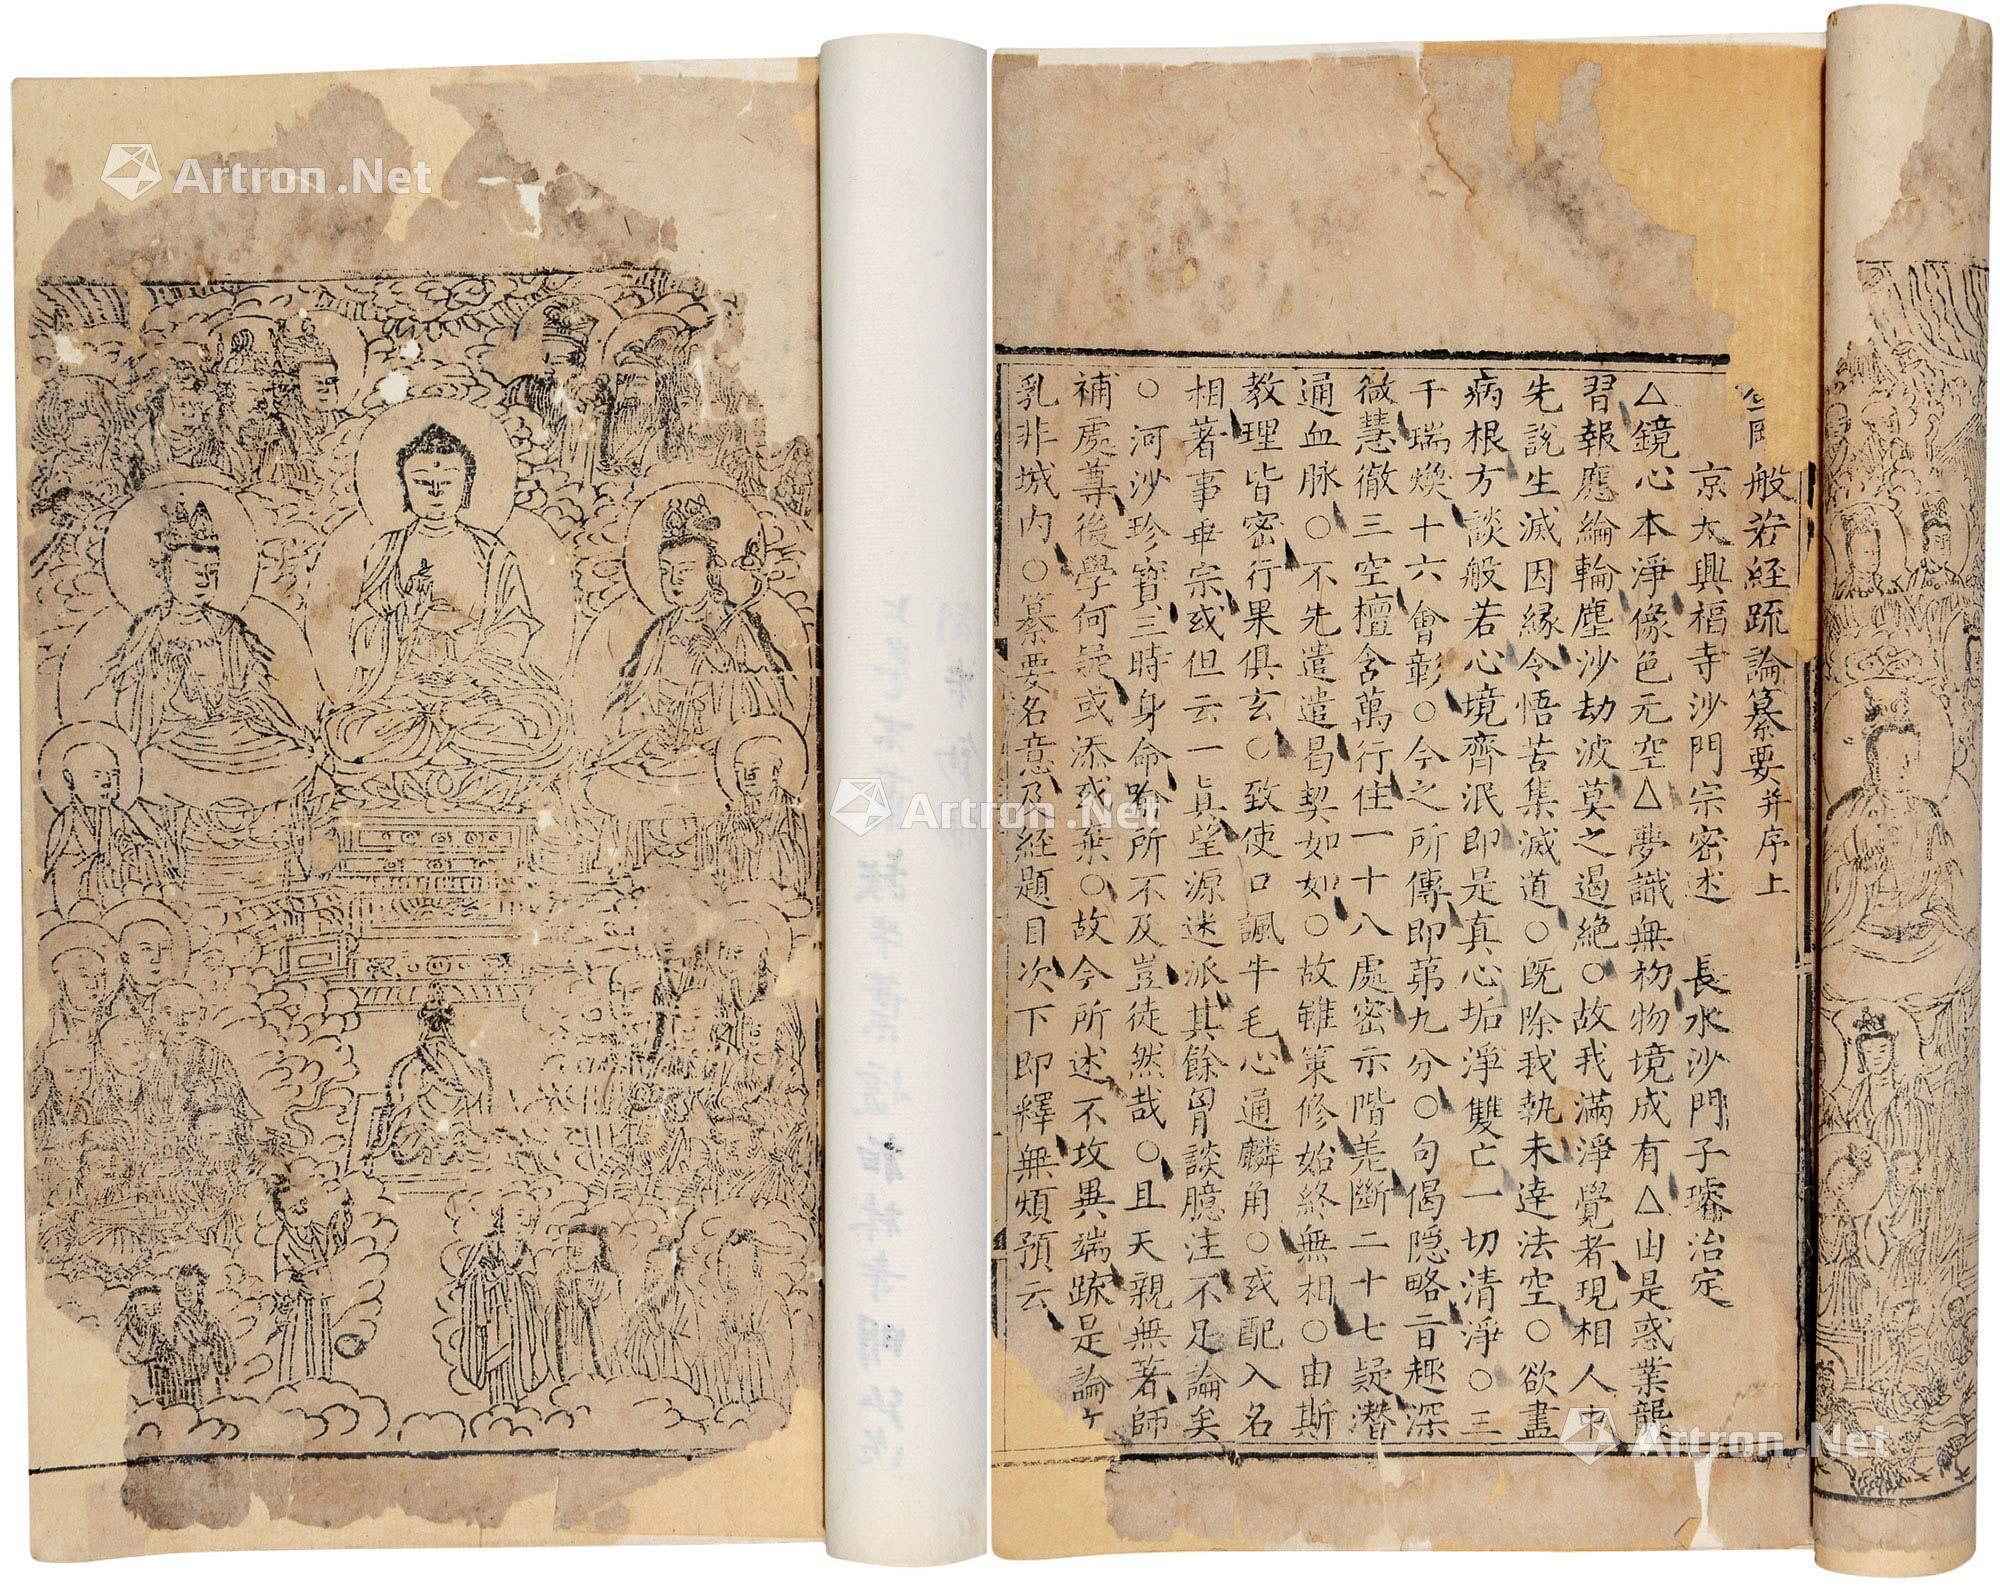 般若経疏論纂要并序上
京大興福寺沙門宗密述　長水沙門子璿治定
△鏡心本淨像色元空△夢識無初物境成有△由是惑業襲
習報應綸輪塵沙劫波莫之遏絶○故我滿淨覺者現相人中
先說生滅因縁令悟苦集滅道○既除我執未達法空○欲盡
病根方談般若心境齊泯即是真心垢淨雙亡一切清淨○三
千瑞煥十六會彰○今之所傳即第九分○句偈隱略旨趣深
微慧徹三空檀含萬行住一十八處密示階差斷二十七疑潛
通血脉○不先遣遣曷契如如○故雖策修始終無相○由斯
教理皆密行果俱玄○致使口諷牛毛心通麟角○或配入名
相著事乖宗或但云一真望源迷派其餘胷談臆注不足論矣
○河沙珍寶三時身命喻所不及豈徒然哉○且天親無著師
補處尊後學何疑或添或棄○故今所述不攻異端疏是論
乳非城内○纂要名意及経題目次下即釋無煩預云
Artron.Net
Artron.Net
Artron.Net